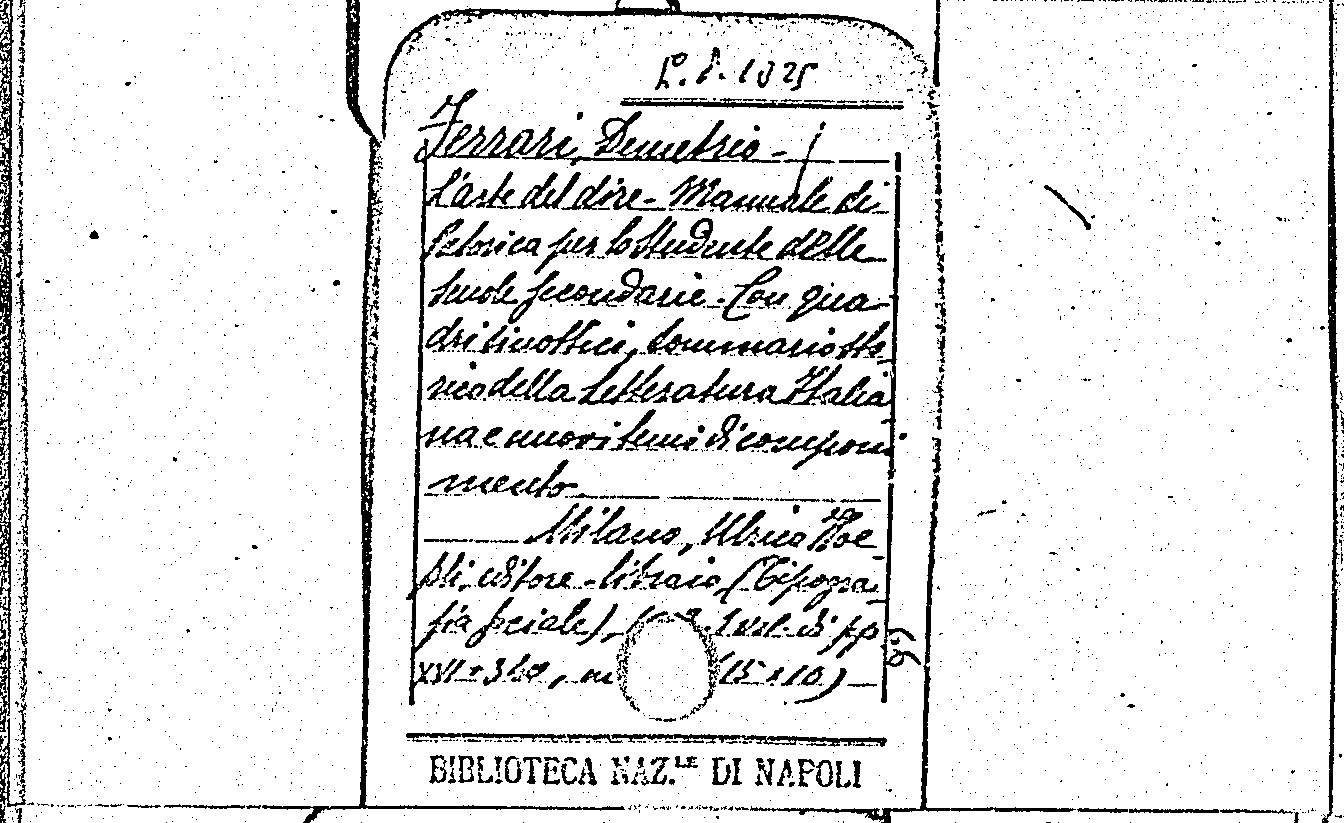 Ferrari, Demetrio -
L'arte del dire - Manuale di
Retorica per lo studente delle
Scuole secondarie - Con qua-
dri sinottici, sommario sto-
rico della letteratura Italia
na e nuovi temi di componi
mento
Milano, Ulrico Hoe-
pli, editore-libraio, (Tipogra-
fia sociale), 1 vol. di pp
XVI + (15 x 10)
BIBLIOTECA NAZ.LE DI NAPOLI